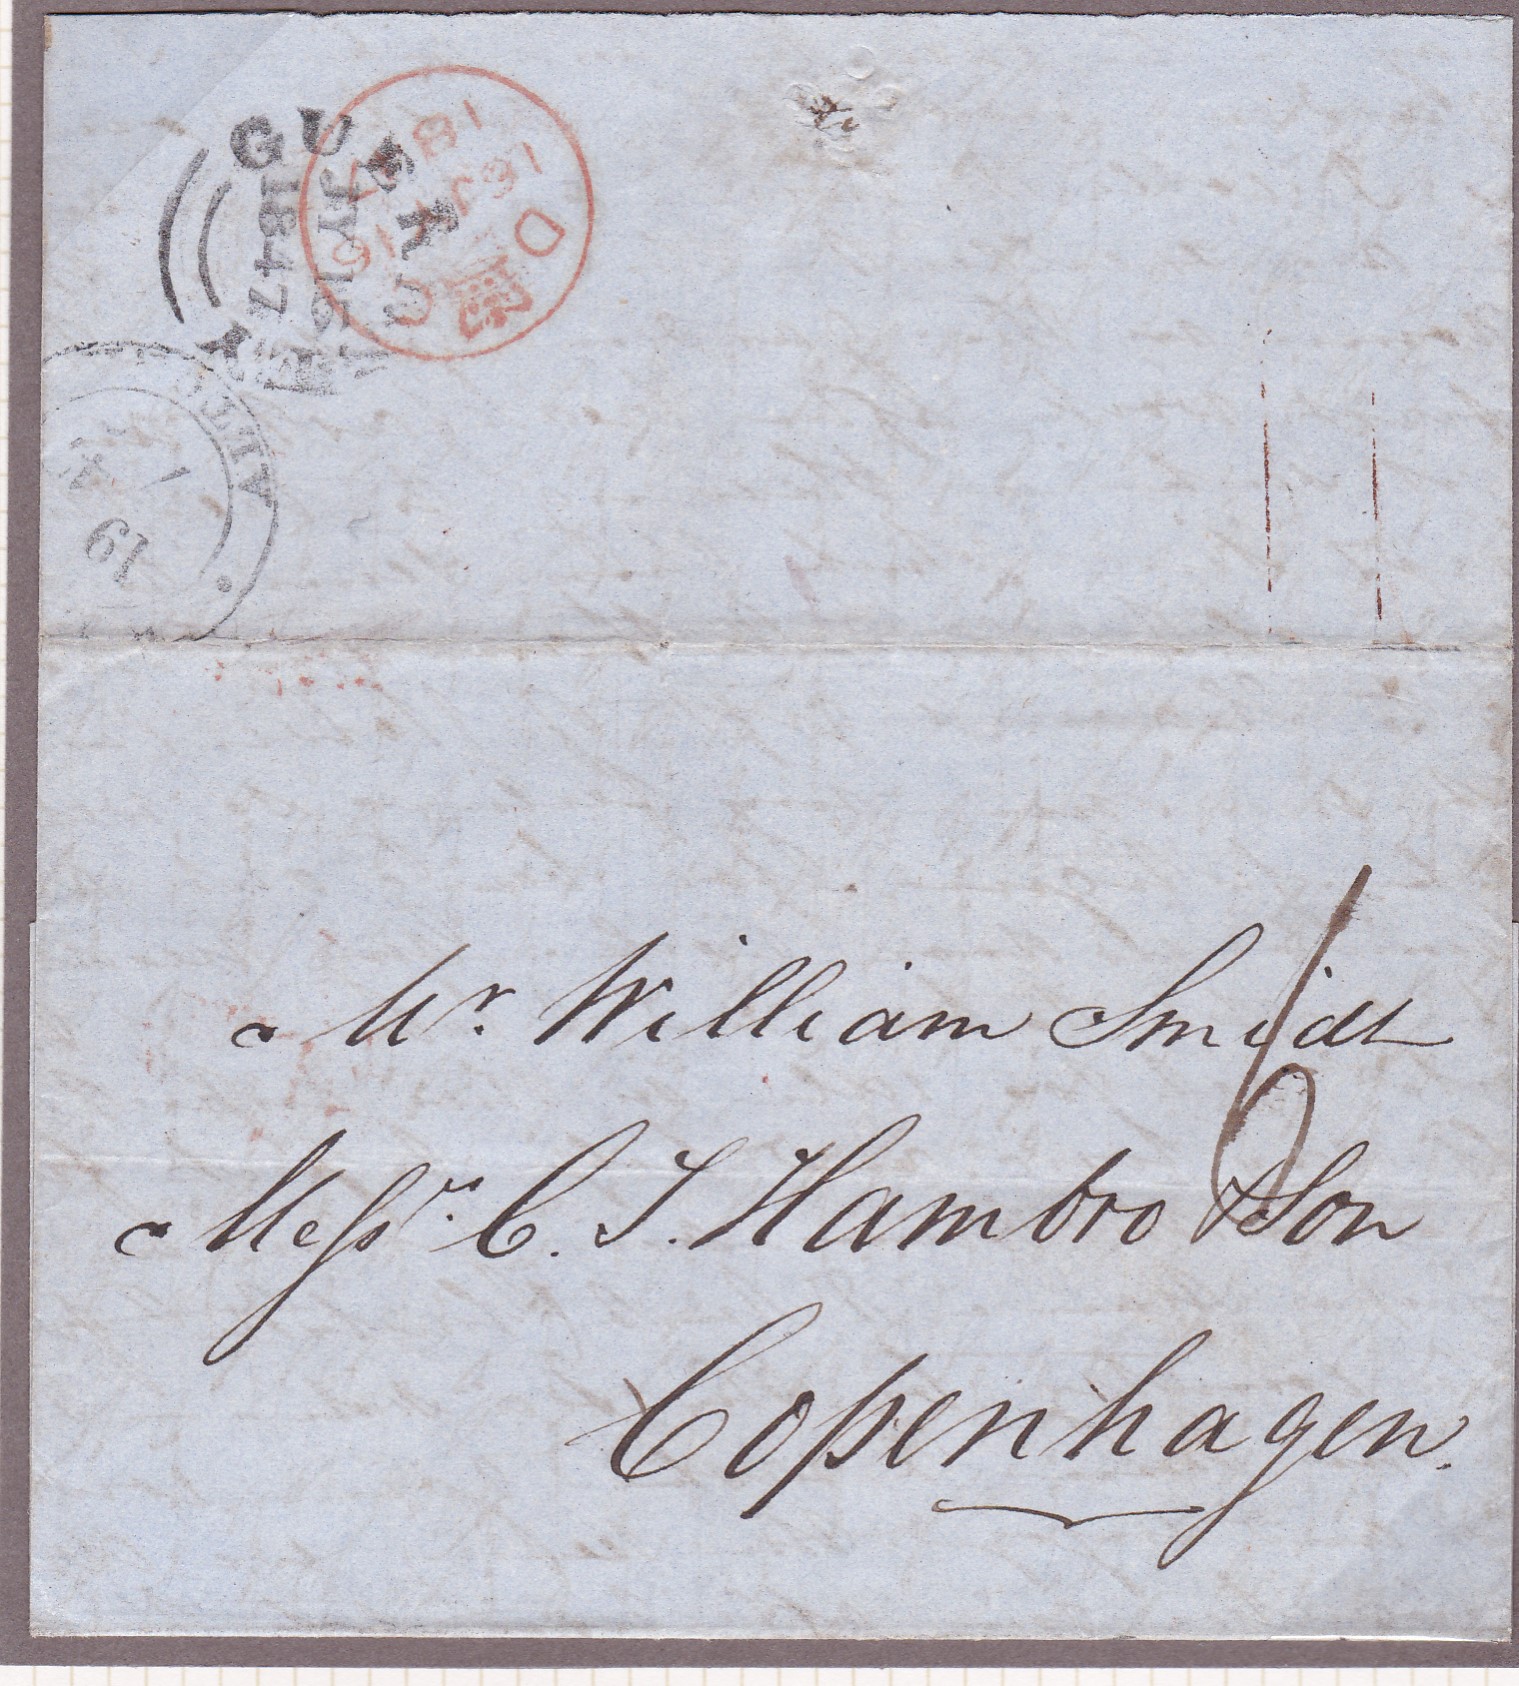 GUERNSEY
JY 15
1847
D
16 JY 16
1847
ALTO
19
Mr. William Smidt
Messrs. C. J. Hambro & Son
Copenhagen.